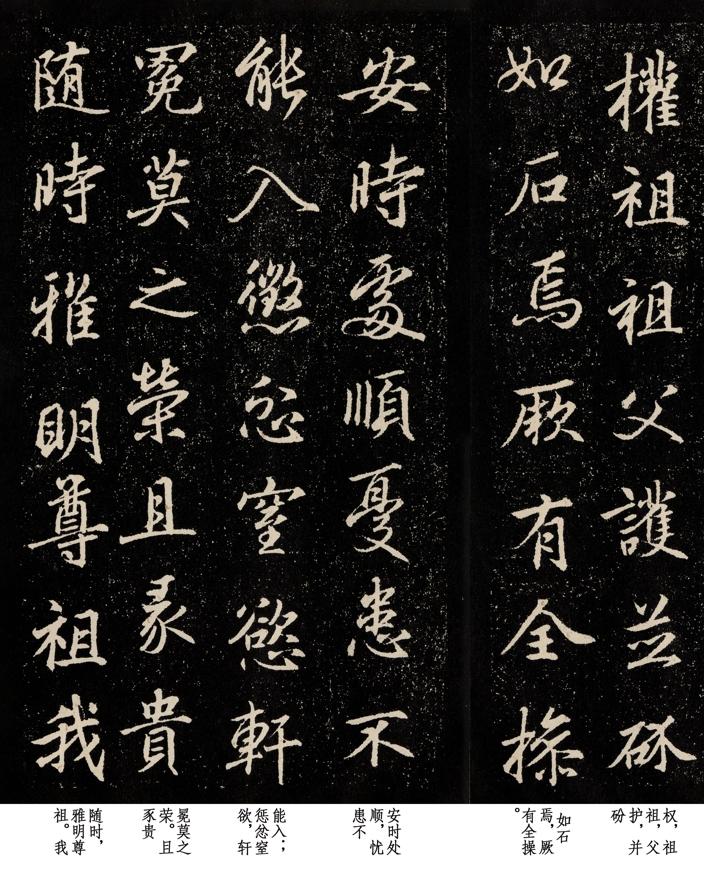 權祖祖父護並砏
如石焉厥有全操
安時處順憂患不
能入懲忿窒慾軒
冕莫之榮且彖貴
随時雅明尊祖我
权，祖
祖，父
护，并
砏
如石
焉，厥
有全操
。
安时处
顺，忧
患不
能入；
惩忿窒
欲，轩
冕莫之
荣。且
豕贵
随时，
雅明尊
祖。我